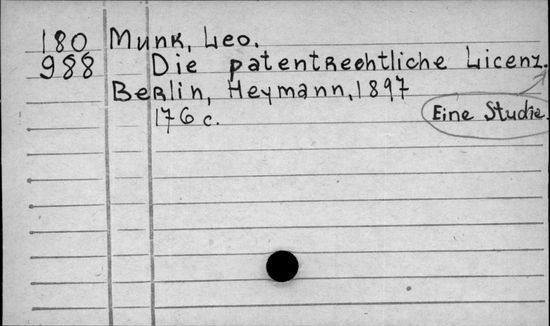 180 Munk, Leo.
988 Die patentrechtliche Licenz.
Berlin, Heymann, 1897
176 c.
Eine Studie.